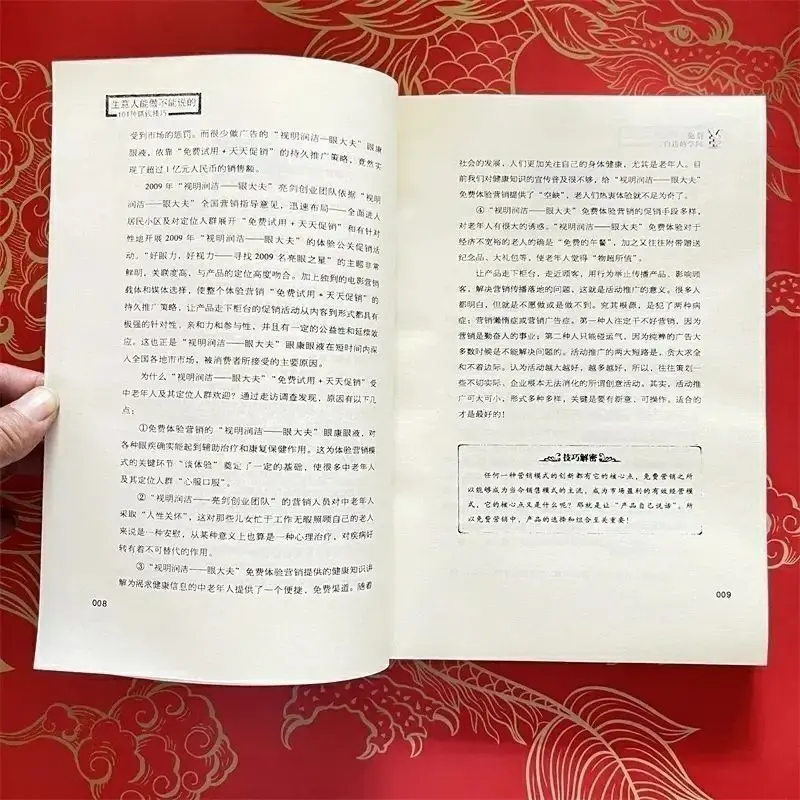 生意人能做不能说的
101种赚钱技巧
受到市场的惩罚。而很少做广告的“视明润洁——眼大夫”眼康
眼液,依靠“免费试用+天天促销”的持久推广策略,竟然实
现了超过1亿元人民币的销售额。
2009年“视明润洁——眼大夫”亮剑创业团队依据“视明
润洁——眼大夫”全国营销指导意见,迅速布局——全面进入
居民小区及对定位人群展开“免费试用+天天促销”和有针对
性地开展2009年“视明润洁——眼大夫”的体验公关促销活
动。“好眼力,好视力——寻找2009名亮眼之星”的主题非常
鲜明,关联度高,与产品的定位高度吻合。加上独到的电影营销
载体和媒体选择,使整个体验营销“免费试用+天天促销”的
持久推广策略,让产品走下柜台的促销活动从内容到形式都具有
极强的针对性,亲和力和参与性,并且有一定的公益性和延续效
应。这也正是“视明润洁——眼大夫”眼康眼液在短时间内深
入全国各地市市场,被消费者所接受的主要原因。
为什么“视明润洁——眼大夫”“免费试用+天天促销”受
中老年人及其定位人群欢迎?通过走访调查发现,原因有以下几
点:
①免费体验营销的“视明润洁——眼大夫”眼康眼液,对
各种眼疾确实能起到辅助治疗和康复保健作用。这为体验营销模
式的关键环节“谈体验”奠定了一定的基础,使很多中老年人
及其定位人群“心服口服”。
②“视明润洁——亮剑创业团队”的营销人员对中老年人
采取“人性关怀”,这对那些儿女忙于工作无暇照顾自己的老人
来说是一种安慰,从某种意义上也算是一种心理治疗,对疾病好
转有着不可替代的作用。
③“视明润洁——眼大夫”免费体验营销提供的健康知识讲
解为渴求健康信息的中老年人提供了一个便捷、免费渠道。随着
008
免费
社会的发展,人们更加关注自己的身体健康,尤其是老年人。目
前我们对健康知识的宣传普及很不够,给“视明润洁——眼大夫”
免费体验营销提供了“空缺”,老人们热衷体验就不足为奇了。
④“视明润洁——眼大夫”免费体验营销的促销手段多样,
对老年人有很大的诱惑。“视明润洁——眼大夫”免费体验对于
经济不宽裕的老人的确是“免费的午餐”,加之又往往附带赠送
纪念品、大礼包等,使老年人觉得“物超所值”。
让产品走下柜台,走近顾客,用行为举止传播产品、影响顾
客,解决营销传播落地的问题,这就是活动推广的意义。很多人
都明白,但就是不愿做或是做不到。究其根源,是犯了两种病
症:营销懒惰症或营销广告症。第一种人注定干不好营销,因为
营销是勤奋人的事业;第二种人只能碰运气,因为纯粹的广告大
多数时候是不能解决问题的。活动推广的两大短路是,贪大求全
和不着边际。认为活动越大越好,越多越好,所以,往往策划一
些不切实际、企业根本无法消化的所谓创意活动。其实,活动推
广可大可小,形式多种多样,关键是要有新意、可操作。适合的
才是最好的!
技巧解密
任何一种营销模式的创新都有它的核心点,免费营销之所
以能够成为当今销售模式的主流,成为市场盈利的有效经营模
式,它的核心点又是什么呢?那就是让“产品自己说话”。所
以免费营销中,产品的选择和组合至关重要!
009